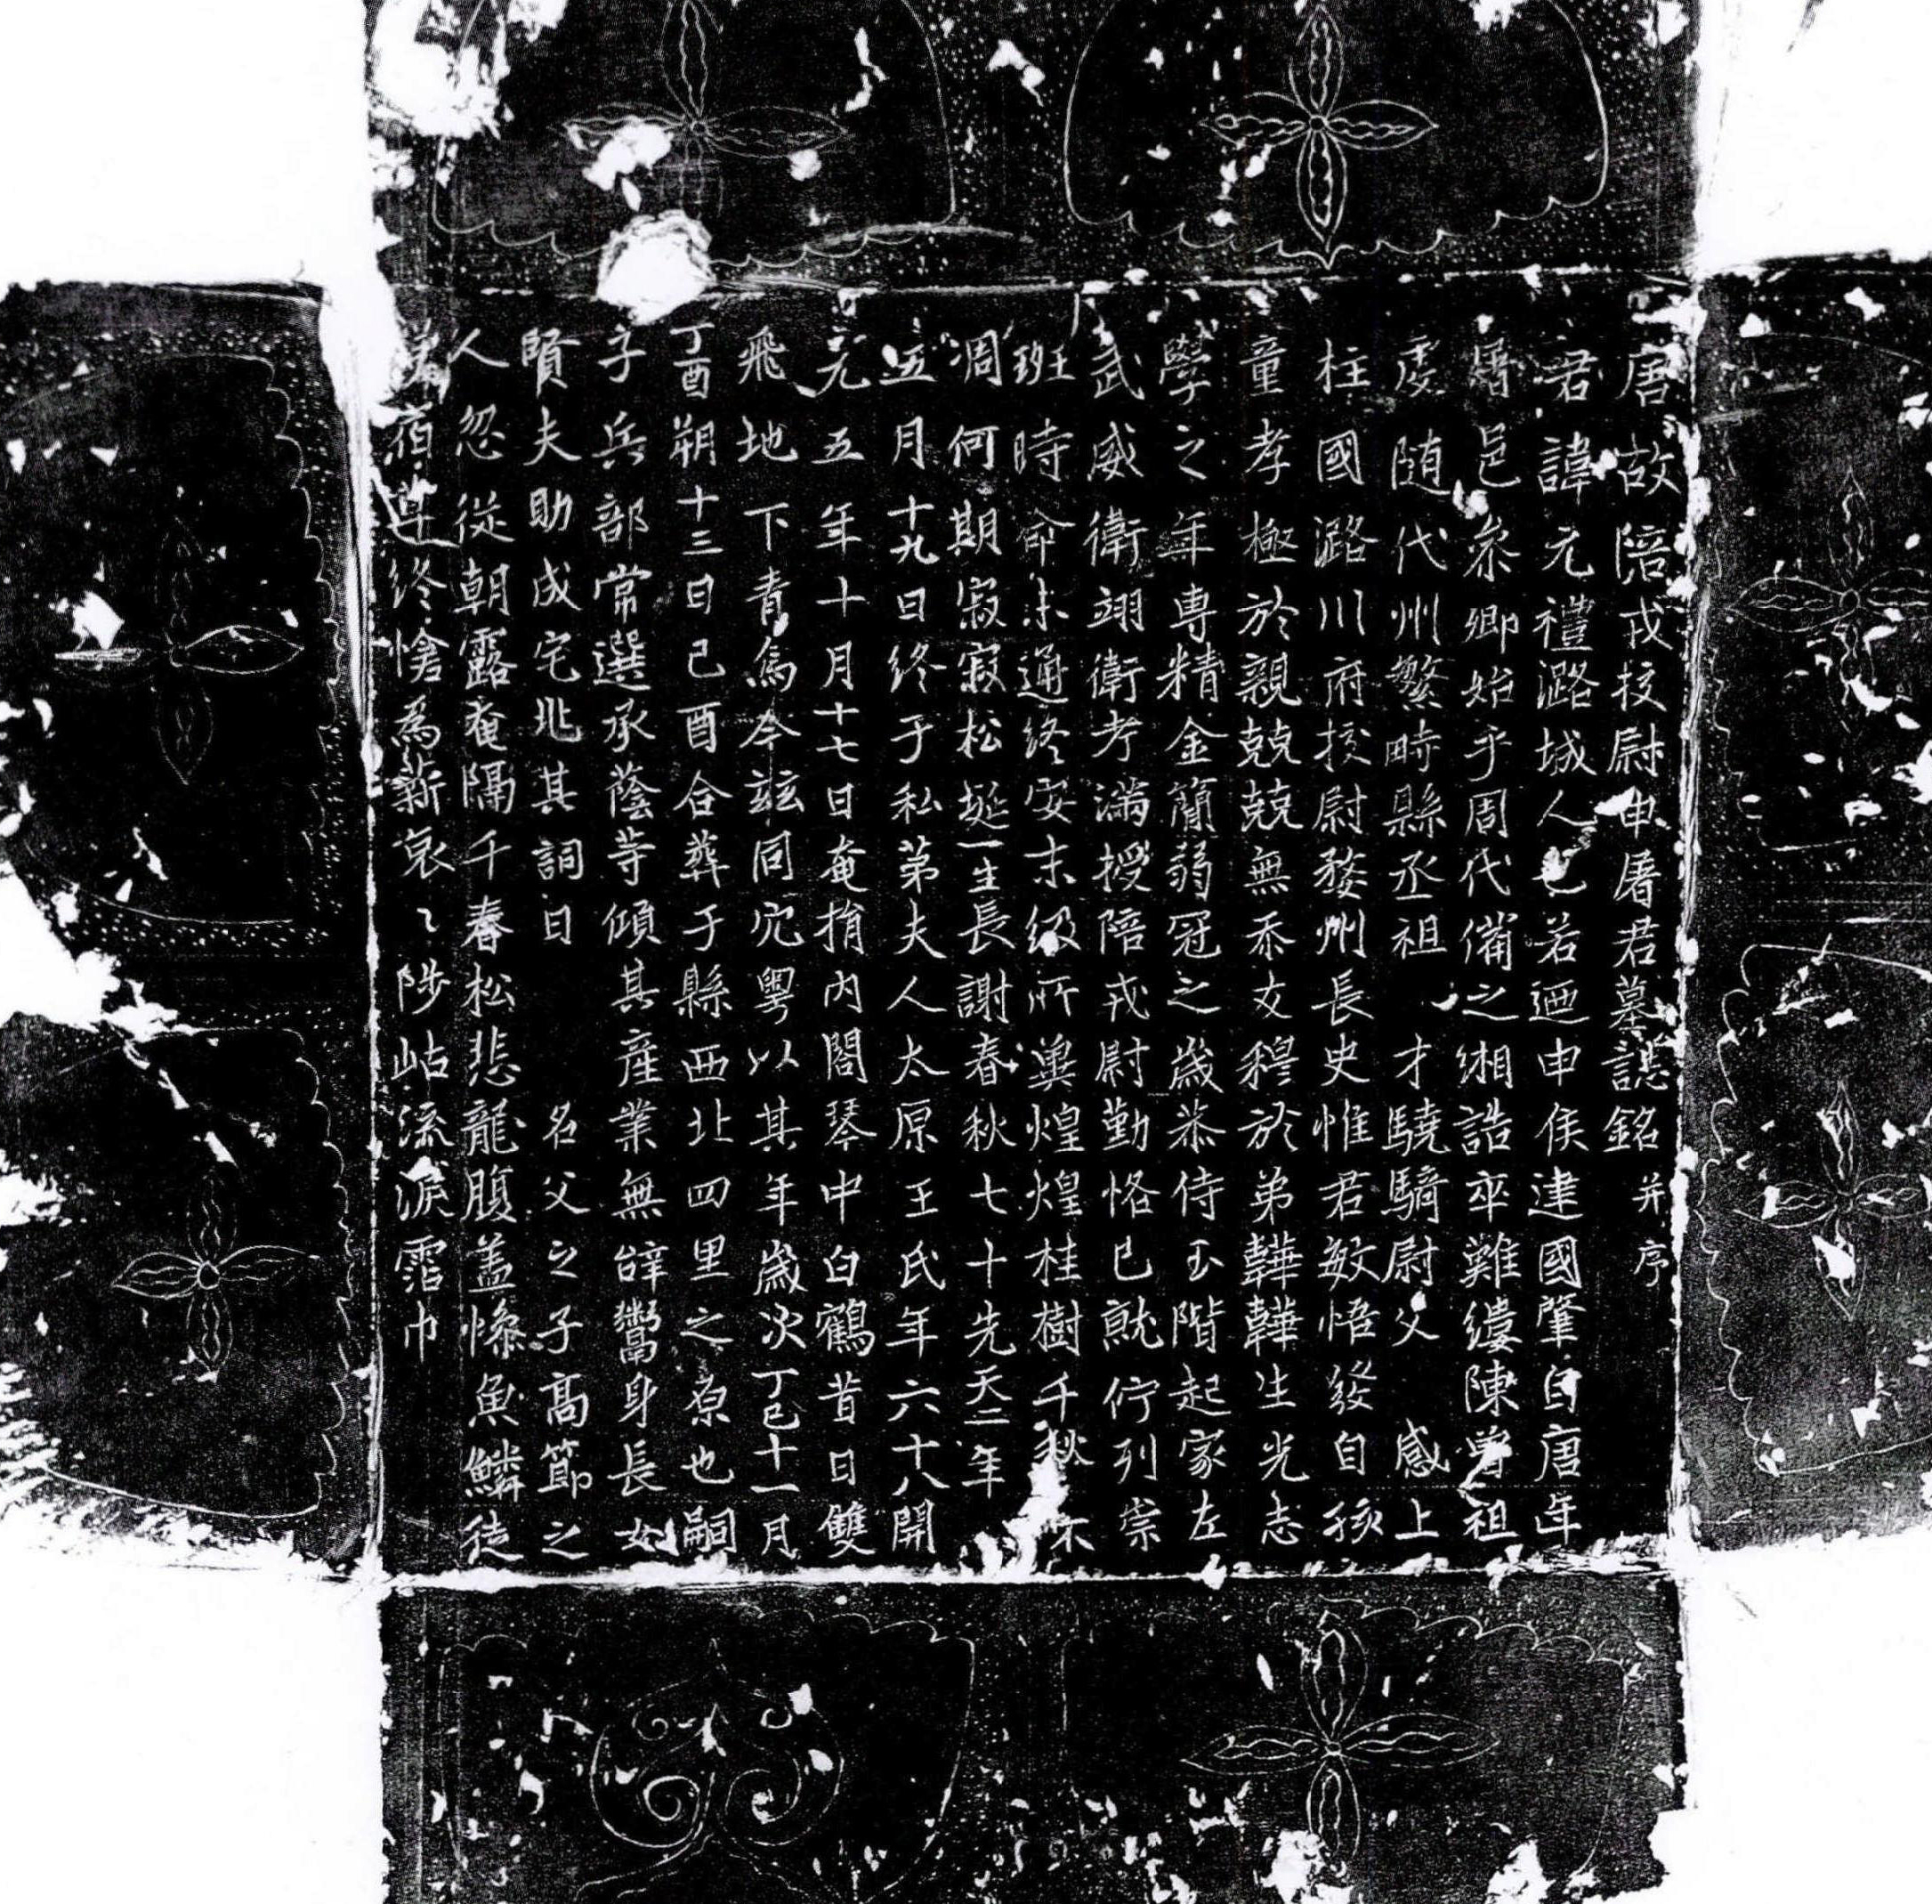 唐故陪戎校尉申屠君墓誌銘并序
君諱元禮潞城人也若迺申侯建國肇自唐年
屠邑条卿始乎周代備之緗誥卒難縷陳曾祖
虔随代州繁畤縣丞祖才驍騎尉父感上
柱國潞川府挍尉婺州長史惟君敏悟發自孩
童孝極於親兢兢無忝友穆於弟韡韡生光志
學之年專精金簡弱冠之歲恭侍玉階起家左
武威衛翊衛考滿授陪戎尉勤恪已就佇列崇
班時命未通終安末級所兾煌煌桂樹千秋不
凋何期寂寂松埏一生長謝春秋七十先天二年
五月十九日終于私第夫人太原王氏年六十八開
元五年十月十七日奄捐內閤琴中白鶴昔日雙
飛地下青烏今茲同穴粵以其年歲次丁巳十一月
丁酉朔十三日己酉合葬于縣西北四里之原也嗣
子兵部常選承蔭等傾其產業無辝鬻身長女
賢夫助成宅兆其詞曰名父之子高節之
人忽從朝露奄隔千春松悲龍腹蓋慘魚鱗徒
宿莚終愴為新哀〻陟岵流淚霑巾